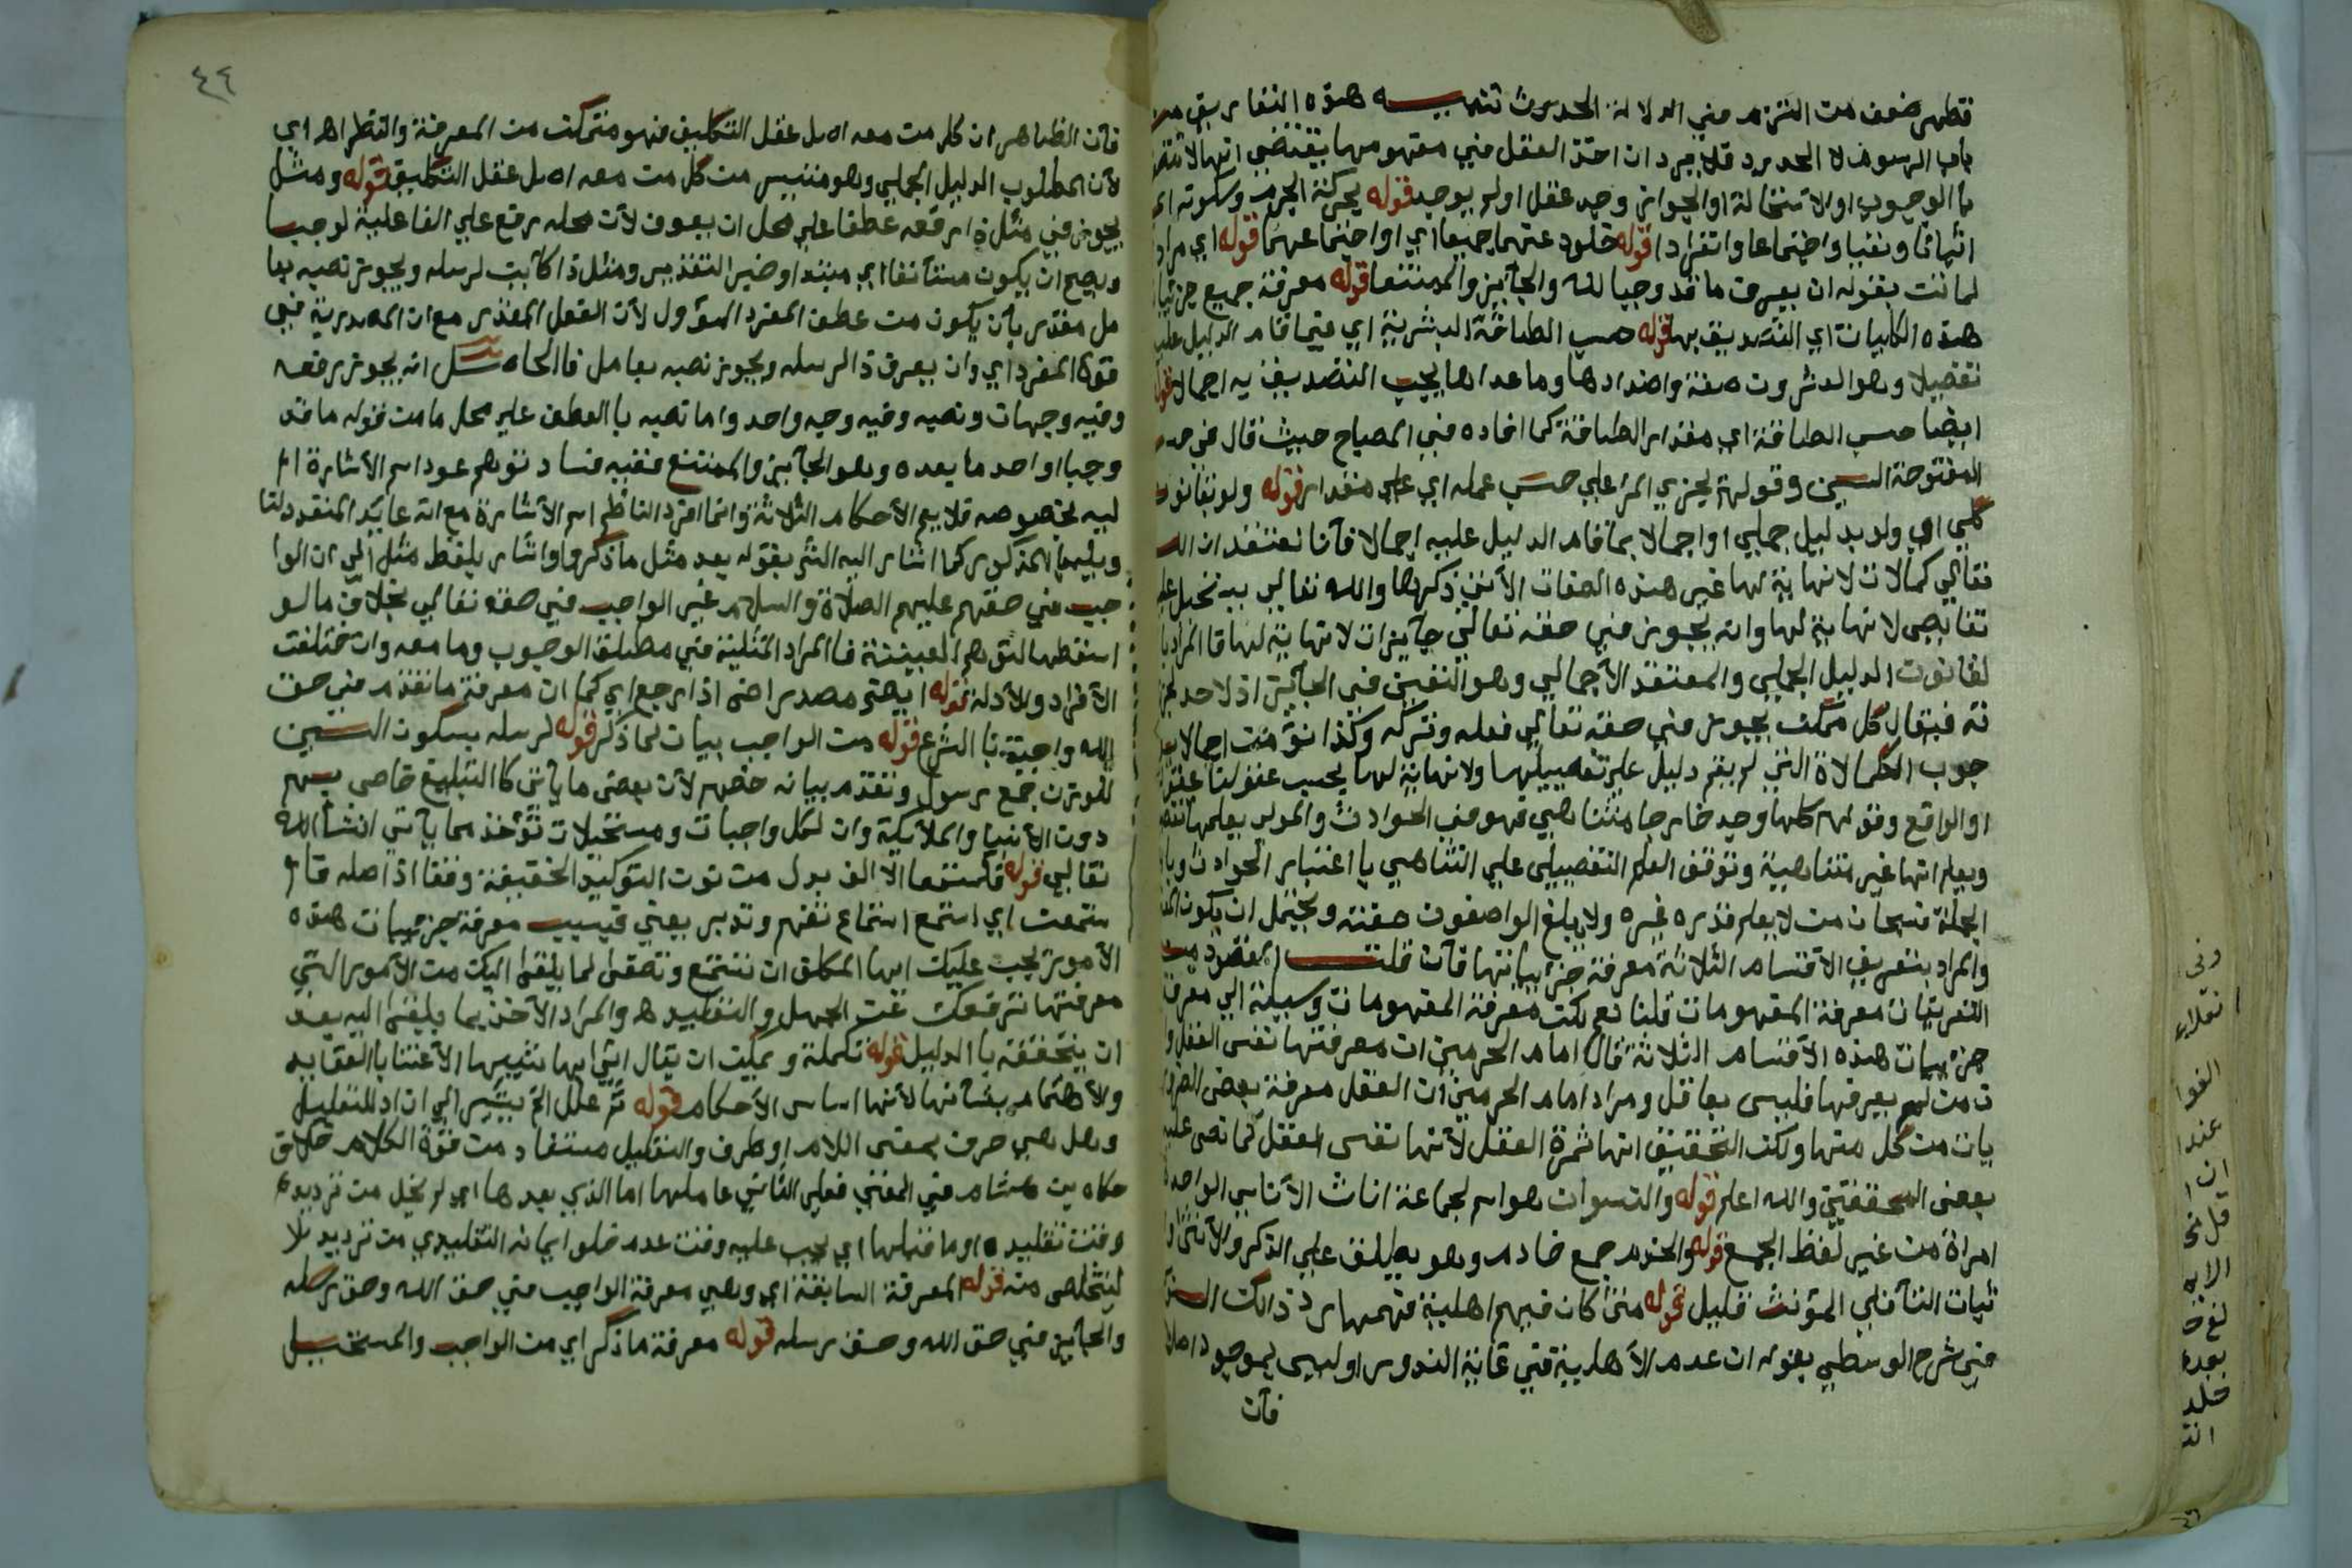 فظهر ضعف من التزم في الدلالة الحدوث تنبيه هذه التعاريف من
باب الرسوم لا الحدود فلا يرد ان اخذ العقل في مفهومها يقتضي انها لا تتصف
بالوجوب او الاستحالة او الجواز وجد عقل او لم يوجد قوله كحركة الجرم وسكونه اي
اثباتا ونفيا واجتماعا وانفرادا قوله خلوه عنهما جميعا اي او اجتماعهما قوله اي مراد
لماتن بقوله ان يعرف ما قد وجبا لله والجايز والممتنعا قوله معرفة جميع جزئيات
هذه الكليات اي التصديق بها قوله حسب الطاقة البشرية اي فيما قام الدليل عليه
تفصيلا وهو العشرون صفة واضدادها وما عداها يجب التصديق به اجمالا قوله
ايضا حسب الطاقة اي مقدار الطاقة كما افاده في المصباح حيث قال في حسب
المفتوحة السين وقولهم يجزي المرء علي حسب عمله اي علي مقداره قوله ولو بقانون
كلي اي ولو بدليل جملي او اجمالا بما قام الدليل عليه اجمالا فاننا نعتقد ان الله
تعالي كمالات لا نهاية لها غير هذه الصفات الاتي ذكرها والله تعالي يستحيل عليه
نقايص لا نهاية لها وانه يجوز في حقه تعالي جايزات لا نهاية لها فالمراد با
لقانون الدليل الجملي والمعتقد الاجمالي وهو التعين في الجايز اذ لا حد لجز
ئه فيقال كل ممكن يجوز في حقه تعالي فعله وتركه وكذا نؤمن اجمالا بو
جوب الكمالاة التي لم يقم دليل علي تفصيلها ولا نهاية لها بحسب عقولنا عقو
او الواقع وقولهم كلما وجد خارجا متناهي فهو في الحوادث والمولي يعلمها تفصيلا
ويعلم انها غير متناهية وتوقف العلم التفصيلي علي التناهي باعتبار الحوادث وبا
الجملة فسبحان من لا يعلم قدره غيره ولا يبلغ الواصفون صفته ويحتمل ان يكون
والمراد بتعريف الاقسام الثلاثة معرفة جزئياتها فان قلت المقصود من
التعريفات معرفة المفهومات قلنا نعم لكن معرفة المفهومات وسيلة الي معرفة
جزئيات هذه الاقسام الثلاثة قال امام الحرمين ان معرفتها نفس العقل و
ن من لم يعرفها فليس بعاقل ومراد امام الحرمين ان العقل معرفة بعض الضرور
يات من كل منها ولكن التحقيق انها ثمرة العقل لانها نفس العقل كما نص عليه
بعض المحققين والله اعلم قوله والنسوان هو اسم لجماعة اناث الاناسي الواحدة
امراة من غير لفظ الجمع قوله والخدم جمع خادم وهو يطلق علي الذكر والانثي و
ثبات التا في المؤنث قليل قوله متي كان فيهم اهلية فهمها رد ذالك السنوسي
في شرح الوسطي بقوله ان عدم الاهلية في غاية الندور او ليس بموجود اصلا
فان
٤٤
فان الظاهر ان كل من معه اصل عقل التكليف فهو متمكن من المعرفة والنظر اه اي
لان المطلوب الدليل الجملي وهو متيسر من كل من معه اصل عقل التكليف قوله ومثل
يجوز في مثل ذا رفعه عطفا علي محل ان يعرف لان محله رفع علي الفاعلية لوجبا
ويصح ان يكون مستأنفا اي مبتدا وخبر التقدير ومثل ذا كائن لرسله ويجوز نصبه بعا
مل مقدر بان يكون من عطف المفرد المؤول لان الفعل المقدر مع ان المصدرية في
قوة المفرد اي وان يعرف ذا لرسله ويجوز نصبه بعامل فالحاصل انه يجوز رفعه
وفيه وجهان ونصبه وفيه وجه واحد واما نصبه بالعطف علي محل ما من قوله ما قد
وجبا او احد ما بعده وهو الجايز والممتنع ففيه فساد توهم عود اسم الاشارة ا
ليه بخصوصه فلا يعم الاحكام الثلاثة وانما افرد الناظم اسم الاشارة مع انه عايد المتعدد لتا
ويلها بالمذكور كما اشار اليه الش بقوله بعد مثل ما ذكر واشار بلفظ مثل الي ان الوا
جب في حقهم عليهم الصلاة والسلام غير الواجب في حقه تعالي بخلاف ما لو
اسقطها لتوهم العينية فالمراد المثلية في مطلق الوجوب وما معه وان ختلفت
الافراد والادلة قوله ايضا مصدر اض اذا رجع اي كما ان معرفة ما تقدم في حق
الله واجبة بالشرع قوله من الواجب بيان لما ذكر قوله لرسله بسكون السين
للوزن جمع رسول وتقدم بيانه خصهم لان بعض ما ياتي كالتبليغ خاص بهم
دون الانبيا والملايكة وان لكل واجبات ومستحيلات تؤخذ مما ياتي انشا الله
تعالي قوله فاستمعا الالف بدل من نون التوكيد الخفيفة وقفا اذ اصله فا
ستمعن اي استمع استماع تفهم وتدبر يعني فبسبب معرفة جزئيات هذه
الامور يجب عليك ايها المكلف ان تستمع وتصغي لما يلقي اليك من الامور التي
معرفتها ترفعك عن الجهل والتقليد ه والمراد الاخذ بما يلقي اليه بعد
ان يتحققه بالدليل قوله تكملة ويمكن ان يقال اتي بها تنبيها الاعتنا بالعقايد
ولاهتمام بشأنها لانها اساس الاحكام قوله ثم علل الخ يشير الي ان اذ للتعليل
وهل هي حرف بمعني اللام او ظرف والتعليل مستفاد من قوة الكلام خلاف
حكاه بن هشام في المغني فعلي الثاني عاملها اما الذي بعدها اي لم يخل من ترديده
وقت تقليده او ما قبلها اي يجب عليه وقت عدم خلو ايمانه التقليدي من ترديد لا
ليتخلص منه قوله المعرفة السابقة اي وهي معرفة الواجب في حق الله وحق رسله
والجايز في حق الله وحق رسله قوله معرفة ما ذكر اي من الواجب والمستحيل